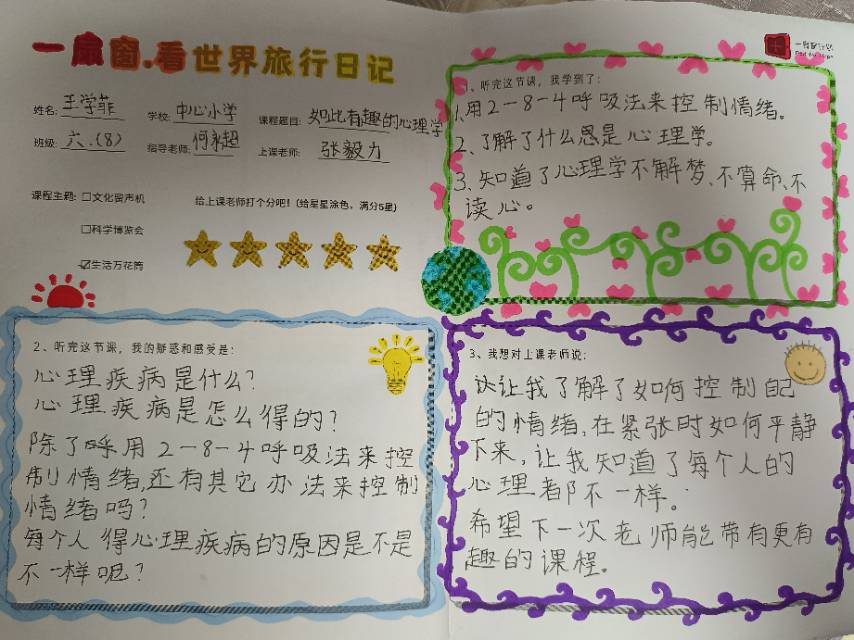 一扇窗.看世界旅行日记
一扇窗计划
姓名: 王学菲 学校: 中心小学 课程题目: 如此有趣的心理学
班级: 六.(8) 指导老师: 何永超 上课老师: 张毅力
课程主题: □文化留声机 给上课老师打个分吧!(给星星涂色,满分5星)
□科学博览会
☑生活万花筒
1、听完这节课,我学到了:
1.用2-8-4呼吸法来控制情绪。
2、了解了什么恩是心理学。
3、知道了心理学不解梦、不算命、不
读心。
2、听完这节课,我的疑惑和感受是:
心理疾病是什么?
心理疾病是怎么得的?
除了呼用2-8-4呼吸法来控
制情绪,还有其它办法来控制
情绪吗?
每个人得心理疾病的原因是不是
不一样呢?
3、我想对上课老师说:
让我了解了如何控制自己
的情绪,在紧张时如何平静
下来,让我知道了每个人的
心理都不一样。
希望下一次老师能带有更有
趣的课程。